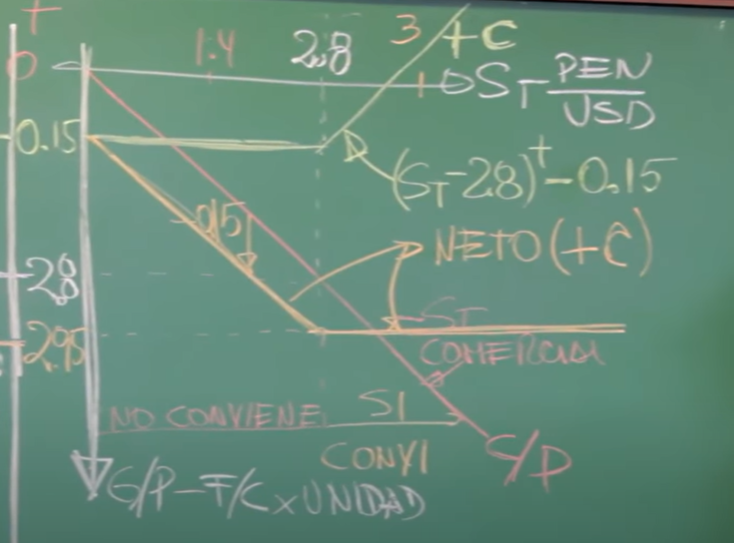 +
3 +C
1.4 2.8
0 S_T PEN/USD
-0.15
(S_T-2.8)^+ -0.15
-0.15
NETO (+C)
-2.8
-S_T
-2.95
COMERCIAL
NO CONVIENE SI
CONVI
S/P
G/P-F/C x UNIDAD